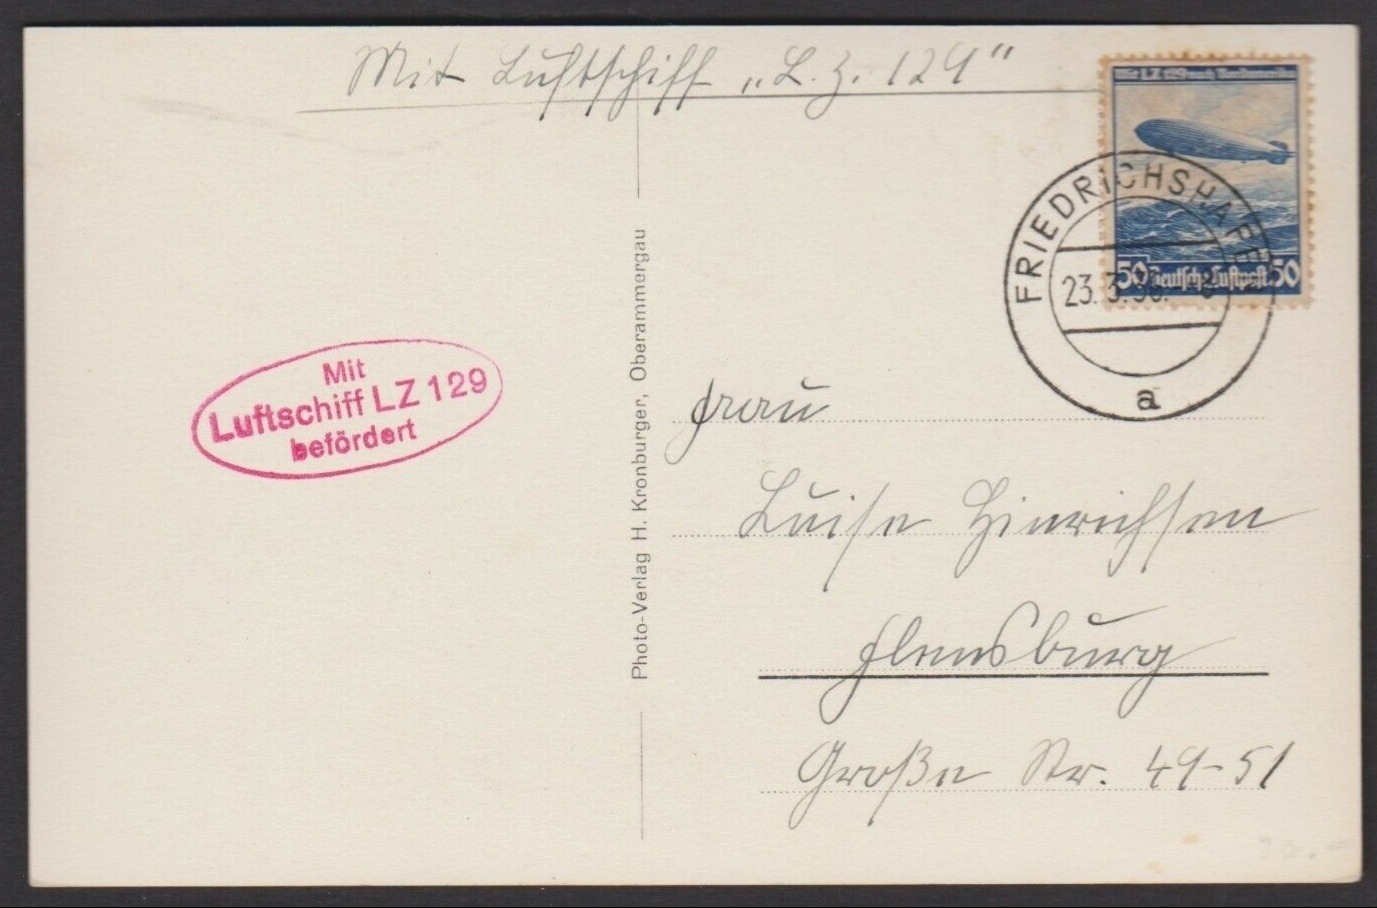 Mit Luftschiff „L.Z. 129"
Mit LZ 129 nach Nordamerika
50 Deutsche Luftpost 50
FRIEDRICHSHAFEN
23.3.36.
a
Mit
Luftschiff LZ 129
befördert
Photo-Verlag H. Kronburger, Oberammergau
Frau
Luise Hinrichsen
Flensburg
Große Str. 49-51